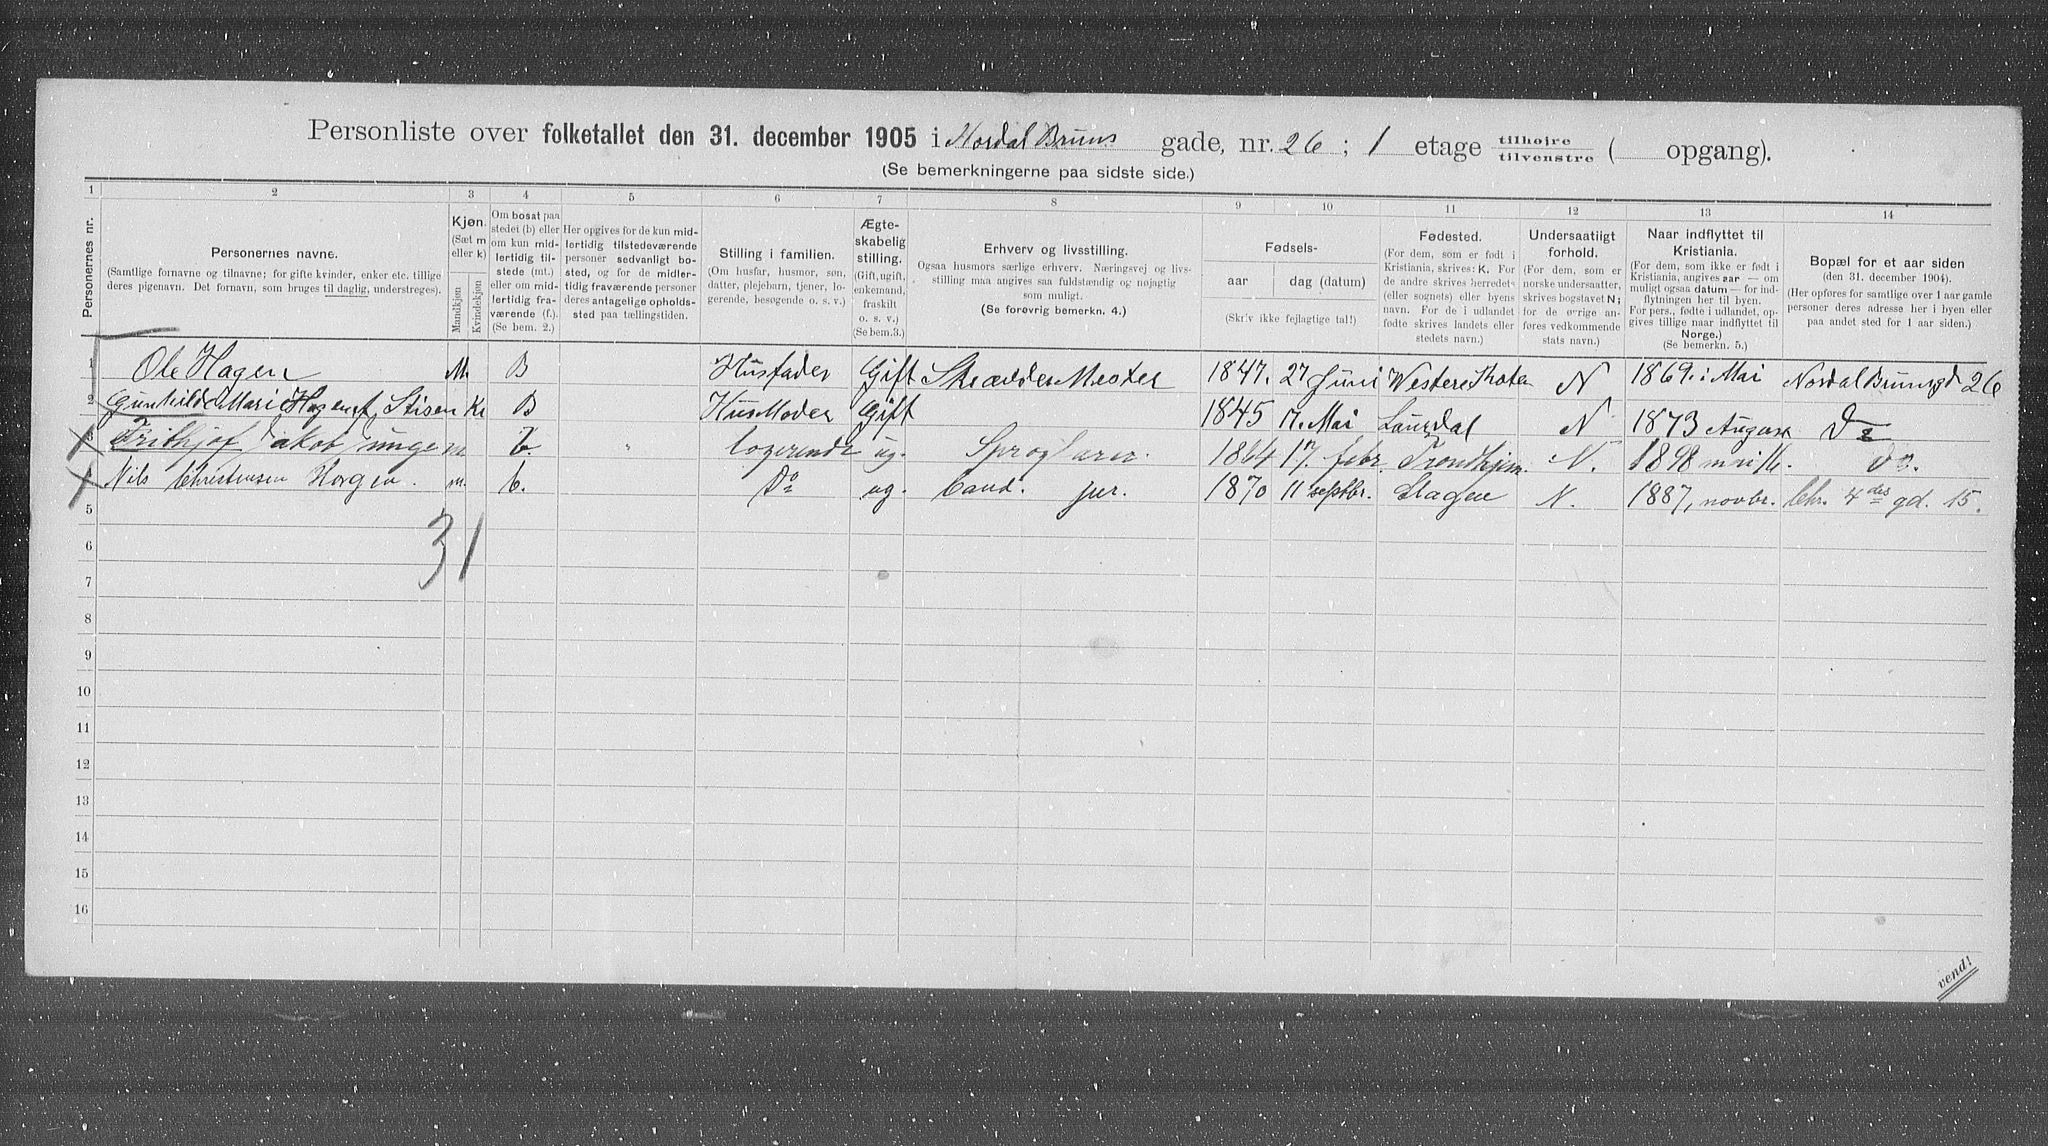 Personliste over folketallet den 31. december 1905 i Nordal Bruns gade, nr. 26 ; 1 etage tilhoire / tilvenstre ( opgang).
(Se bemerkningerne paa sidste side.)
1 2 3 4 5 6 7 8 9 10 11 12 13 14
Personernes nr.
Personernes navne.
(Samtlige fornavne og tilnavne; for gifte kvinder, enker etc. tillige
deres pigenavn. Det fornavn, som bruges til daglig, understreges).
Kjøn.
(Sæt m
eller k)
Mandkjøn
Kvindekjøn
Om bosat paa
stedet (b) eller
om kun mid-
lertidig til-
stede (mt.)
eller om mid-
lertidig fra-
værende (f.).
(Se bem. 2.)
Her opgives for de kun mid-
lertidig tilstedeværende
personer sedvanligt bo-
sted, og for de midler-
tidig fraværende personer
deres antagelige ophold-
sted paa tællingstiden.
Stilling i familien.
(Om husfar, husmor, søn,
datter, plejebarn, tjener, lo-
gerende, besøgende o. s. v.)
Ægte-
skabelig
stilling.
(Gift, ugift,
enkemand,
fraskilt
o. s. v.)
(Se bem. 3.)
Erhverv og livsstilling.
Ogsaa husmors særlige erhverv. Næringsvej og livs-
stilling maa angives saa fuldstændig og nøjagtig
som muligt.
(Se forøvrig bemerkn. 4.)
Fødsels-
aar dag (datum)
(Skriv ikke fejlagtige tal!!)
Fødested.
(For dem, som er født i
Kristiania, skrives: K. For
de andre skrives herredets
(eller sognets) eller byens
navn. For de i udlandet
fødte skrives landets eller
stedets navn.)
Undersaatligt
forhold.
(For dem, som er
norske undersaatter,
skrives bogstavet N;
for de øvrige an-
føres vedkommende
stats navn.)
Naar indflyttet til
Kristiania.
(For dem, som ikke er født i
Kristiania, angives aar — om
muligt ogsaa datum — for ind-
flytningen her til byen.
For pers., fødte i udlandet, op-
gives tillige naar indflyttet til
Norge.)
(Se bemerkn. 5.)
Bopæl for et aar siden
(den 31. december 1904).
(Her opføres for samtlige over 1 aar gamle
personer deres adresse her i byen eller
paa andet sted for 1 aar siden.)
1 Ole Hagen M. B Husfader Gift Skrædder Mester 1847. 27 Juni Westere Thoten N 1869. i Mai Nordal Brunsgd 26
2 Gunhild Mari Hagen f. Stisen Kv B HusModer Gift 1845 17. Mai Laurdal N 1873 August Do
3 Frithjof Jakob Junge m b. " logerende ug. Sproglærer 1864 17. febr. Trondhjem N. 1898 Do.
4 Nils Christensen Horgen. m. b. Do ug. Cand. jur. 1870 11 septbr. Slagen N. 1887, novbr. Chr. 4des gd. 15.
5
31
6
7
8
9
10
11
12
13
14
15
16
vend!